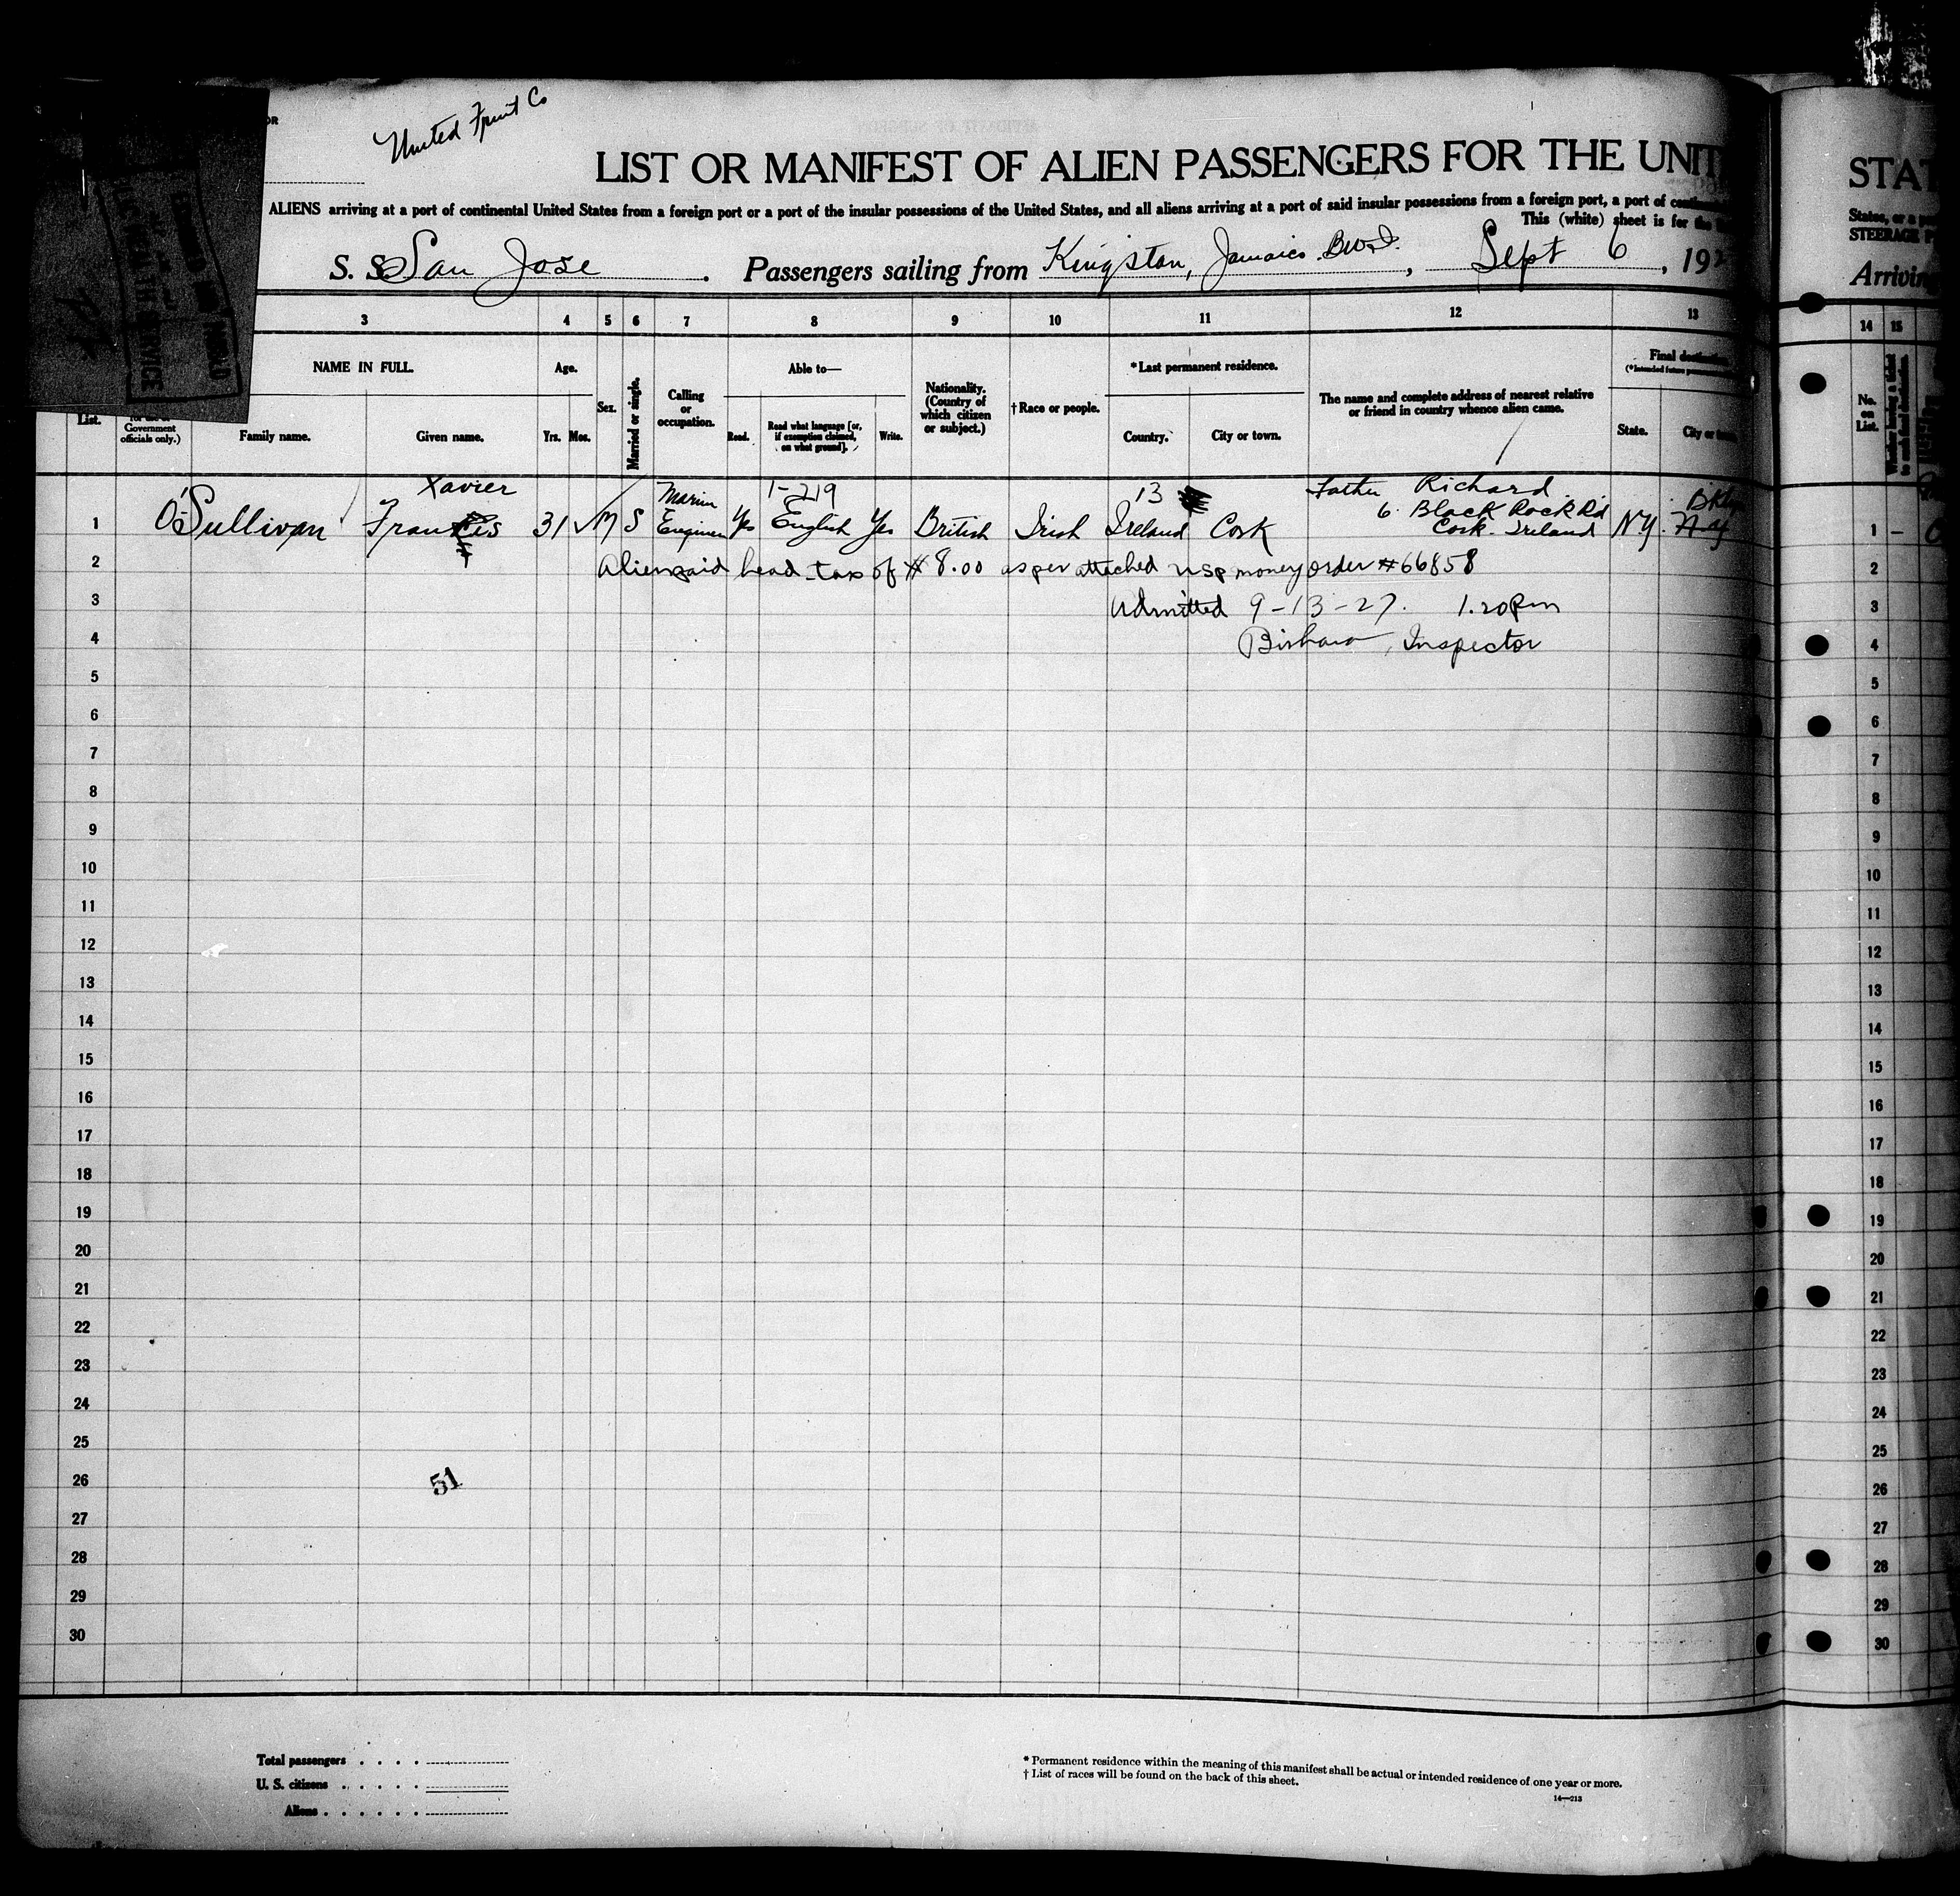 United Fruit Co
LIST OR MANIFEST OF ALIEN PASSENGERS FOR THE UNIT
STAT
ALIENS arriving at a port of continental United States from a foreign port or a port of the insular possessions of the United States, and all aliens arriving at a port of said insular possessions from a foreign port, a port of
This (white) sheet is for the
States, or a
STEERAGE P
S. S. San Jose. Passengers sailing from Kingston, Jamaica B.W.I., Sept 6, 192
Arriving
3 4 5 6 7 8 9 10 11 12 13
14 15
NAME IN FULL.
Family name.
Given name.
Age.
Yrs. Mos.
Sex.
Married or single.
Calling or occupation.
Able to—
Read.
Read what language [or, if exemption claimed, on what ground].
Write.
Nationality. (Country of which citizen or subject.)
†Race or people.
*Last permanent residence.
Country.
City or town.
The name and complete address of nearest relative or friend in country whence alien came.
Final destination.
State.
City or town
No. on List.
List.
Government officials only.)
PUBLIC HEALTH SERVICE
Xavier Marine 1-219 13 Father Richard Bklyn
1 O'Sullivan Francis 31 M S Engineer Yes English Yes British Irish Ireland Cork 6. Black Rock Rd N.Y. N.Y
Cork. Ireland
1 –
2 Alien paid head tax of $8.00 as per attached USP money order #66858
2
3 Admitted 9-13-27. 1.20 Pm
3
4 Inspector
4
5
5
6
6
7
7
8
8
9
9
10
10
11
11
12
12
13
13
14
14
15
15
16
16
17
17
18
18
19
19
20
20
21
21
22
22
23
23
24
24
25
25
26 51
26
27
27
28
28
29
29
30
30
Total passengers . . . .
U. S. citizens . . . . .
Aliens . . . . . .
* Permanent residence within the meaning of this manifest shall be actual or intended residence of one year or more.
† List of races will be found on the back of this sheet.
14—213